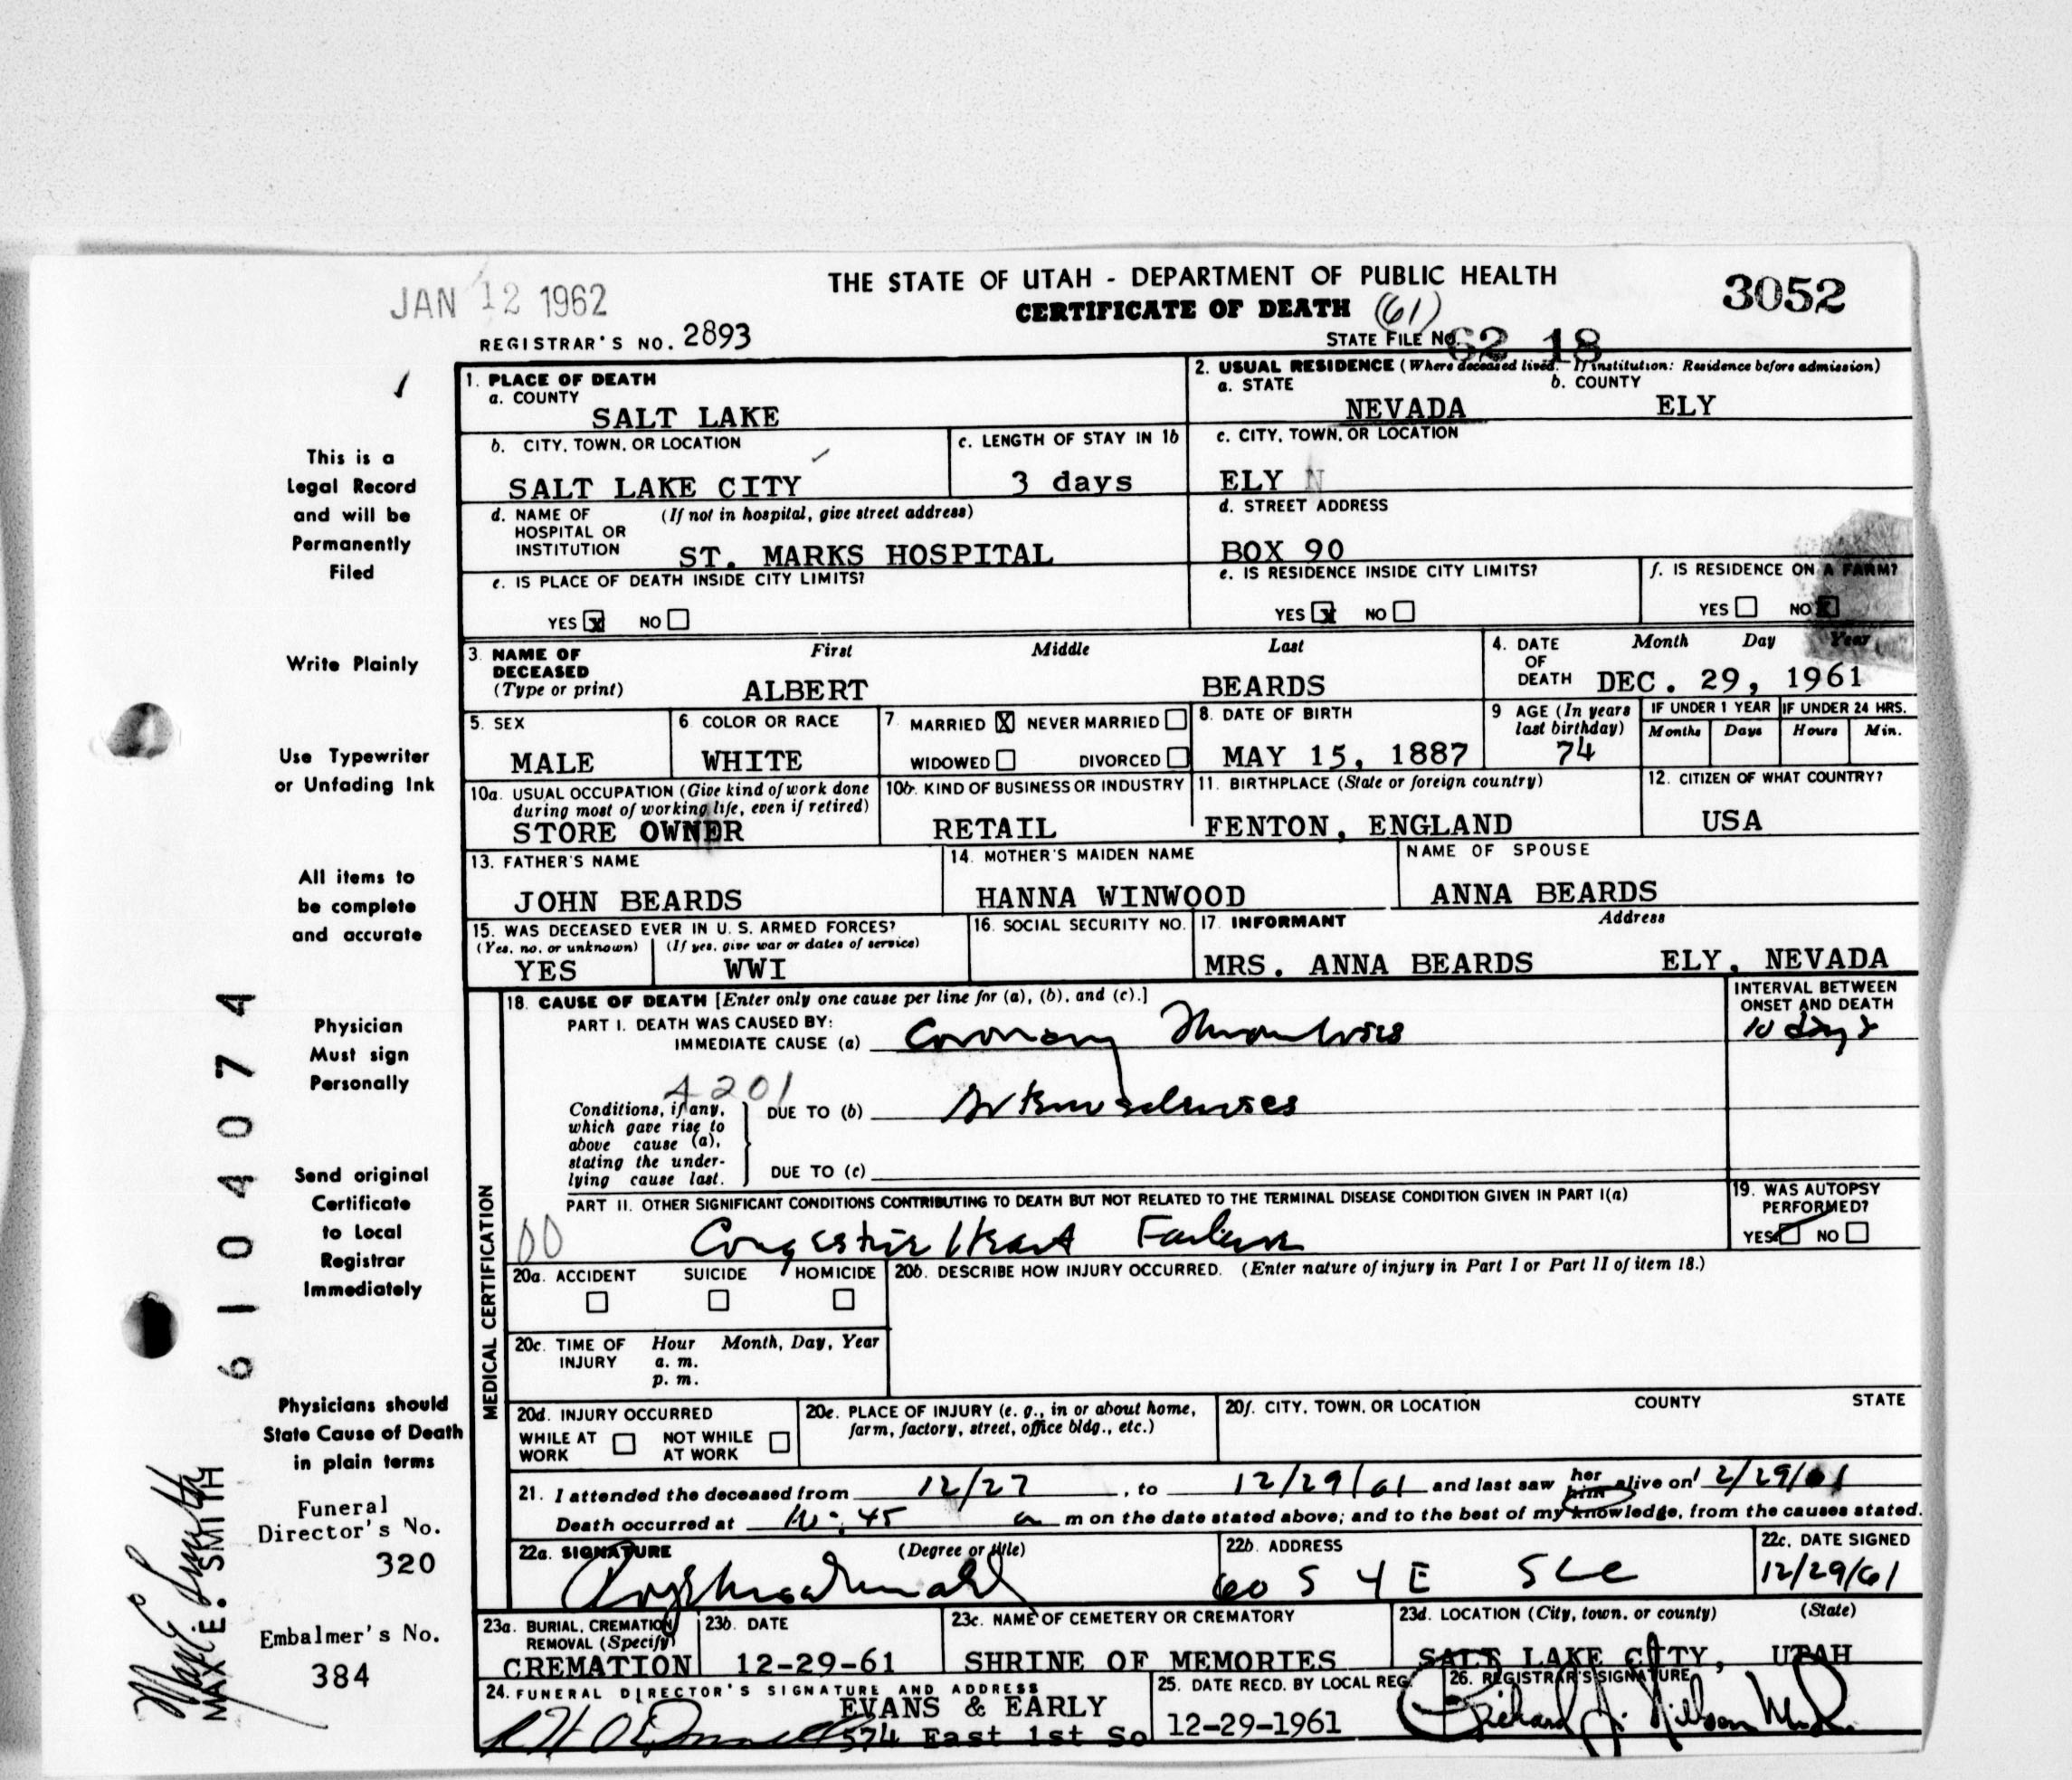 THE STATE OF UTAH - DEPARTMENT OF PUBLIC HEALTH
3052
JAN 12 1962
CERTIFICATE OF DEATH (61)
REGISTRAR'S NO. 2893
STATE FILE NO. 62 18
1. PLACE OF DEATH
a. COUNTY
SALT LAKE
2. USUAL RESIDENCE (Where deceased lived. If institution: Residence before admission)
a. STATE b. COUNTY
NEVADA ELY
b. CITY, TOWN, OR LOCATION
SALT LAKE CITY
c. LENGTH OF STAY IN 1b
3 days
c. CITY, TOWN, OR LOCATION
ELY N
d. NAME OF (If not in hospital, give street address)
HOSPITAL OR
INSTITUTION ST. MARKS HOSPITAL
d. STREET ADDRESS
BOX 90
e. IS PLACE OF DEATH INSIDE CITY LIMITS?
YES X NO
e. IS RESIDENCE INSIDE CITY LIMITS?
YES X NO
f. IS RESIDENCE ON A FARM?
YES NO X
3. NAME OF DECEASED (Type or print)
First Middle Last
ALBERT BEARDS
4. DATE OF DEATH
Month Day Year
DEC. 29, 1961
5. SEX
MALE
6. COLOR OR RACE
WHITE
7. MARRIED X NEVER MARRIED
WIDOWED DIVORCED
8. DATE OF BIRTH
MAY 15, 1887
9 AGE (In years last birthday)
74
IF UNDER 1 YEAR IF UNDER 24 HRS.
Months Days Hours Min.
10a. USUAL OCCUPATION (Give kind of work done
during most of working life, even if retired)
STORE OWNER
10b. KIND OF BUSINESS OR INDUSTRY
RETAIL
11. BIRTHPLACE (State or foreign country)
FENTON, ENGLAND
12. CITIZEN OF WHAT COUNTRY?
USA
13. FATHER'S NAME
JOHN BEARDS
14. MOTHER'S MAIDEN NAME
HANNA WINWOOD
NAME OF SPOUSE
ANNA BEARDS
15. WAS DECEASED EVER IN U. S. ARMED FORCES?
(Yes, no, or unknown) (If yes, give war or dates of service)
YES WWI
16. SOCIAL SECURITY NO.
17. INFORMANT Address
MRS. ANNA BEARDS ELY, NEVADA
MEDICAL CERTIFICATION
18. CAUSE OF DEATH [Enter only one cause per line for (a), (b), and (c).]
INTERVAL BETWEEN
ONSET AND DEATH
PART I. DEATH WAS CAUSED BY:
IMMEDIATE CAUSE (a) Coronary Thrombosis 10 days
4201
Conditions, if any,
which gave rise to
above cause (a),
stating the under-
lying cause last.
DUE TO (b) Arteriosclerosis
DUE TO (c)
PART II. OTHER SIGNIFICANT CONDITIONS CONTRIBUTING TO DEATH BUT NOT RELATED TO THE TERMINAL DISEASE CONDITION GIVEN IN PART I(a)
00 Congestive Heart Failure
19. WAS AUTOPSY
PERFORMED?
YES NO
20a. ACCIDENT SUICIDE HOMICIDE
20b. DESCRIBE HOW INJURY OCCURRED. (Enter nature of injury in Part I or Part II of item 18.)
20c. TIME OF INJURY
Hour Month, Day, Year
a. m.
p. m.
20d. INJURY OCCURRED
WHILE AT WORK NOT WHILE AT WORK
20e. PLACE OF INJURY (e. g., in or about home,
farm, factory, street, office bldg., etc.)
20f. CITY, TOWN, OR LOCATION COUNTY STATE
21. I attended the deceased from 12/27, to 12/29/61 and last saw her him alive on 12/29/61
Death occurred at 10:45 a m on the date stated above; and to the best of my knowledge, from the causes stated.
22a. SIGNATURE (Degree or title)
22b. ADDRESS
60 S 4 E SLC
22c. DATE SIGNED
12/29/61
23a. BURIAL, CREMATION,
REMOVAL (Specify)
CREMATION
23b. DATE
12-29-61
23c. NAME OF CEMETERY OR CREMATORY
SHRINE OF MEMORIES
23d. LOCATION (City, town, or county) (State)
SALT LAKE CITY, UTAH
24. FUNERAL DIRECTOR'S SIGNATURE AND ADDRESS
EVANS & EARLY
574 East 1st So
25. DATE RECD. BY LOCAL REG.
12-29-1961
26. REGISTRAR'S SIGNATURE
Richard J. Nilson M.D.
This is a
Legal Record
and will be
Permanently
Filed
Write Plainly
Use Typewriter
or Unfading Ink
All items to
be complete
and accurate
Physician
Must sign
Personally
Send original
Certificate
to Local
Registrar
Immediately
Physicians should
State Cause of Death
in plain terms
Funeral
Director's No.
320
Embalmer's No.
384
6104074
Max E. Smith
MAX E. SMITH